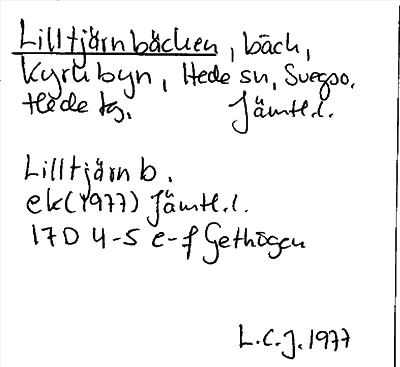 Lilltjärnbäcken, bäck,
Kyrkbyn, Hede sn, Svegso.
Hede tg. Jämtl.l.
Lilltjärnb.
ek(1977) Jämtl.l.
17D 4-5 e-f Gethögen
L.C.J. 1977